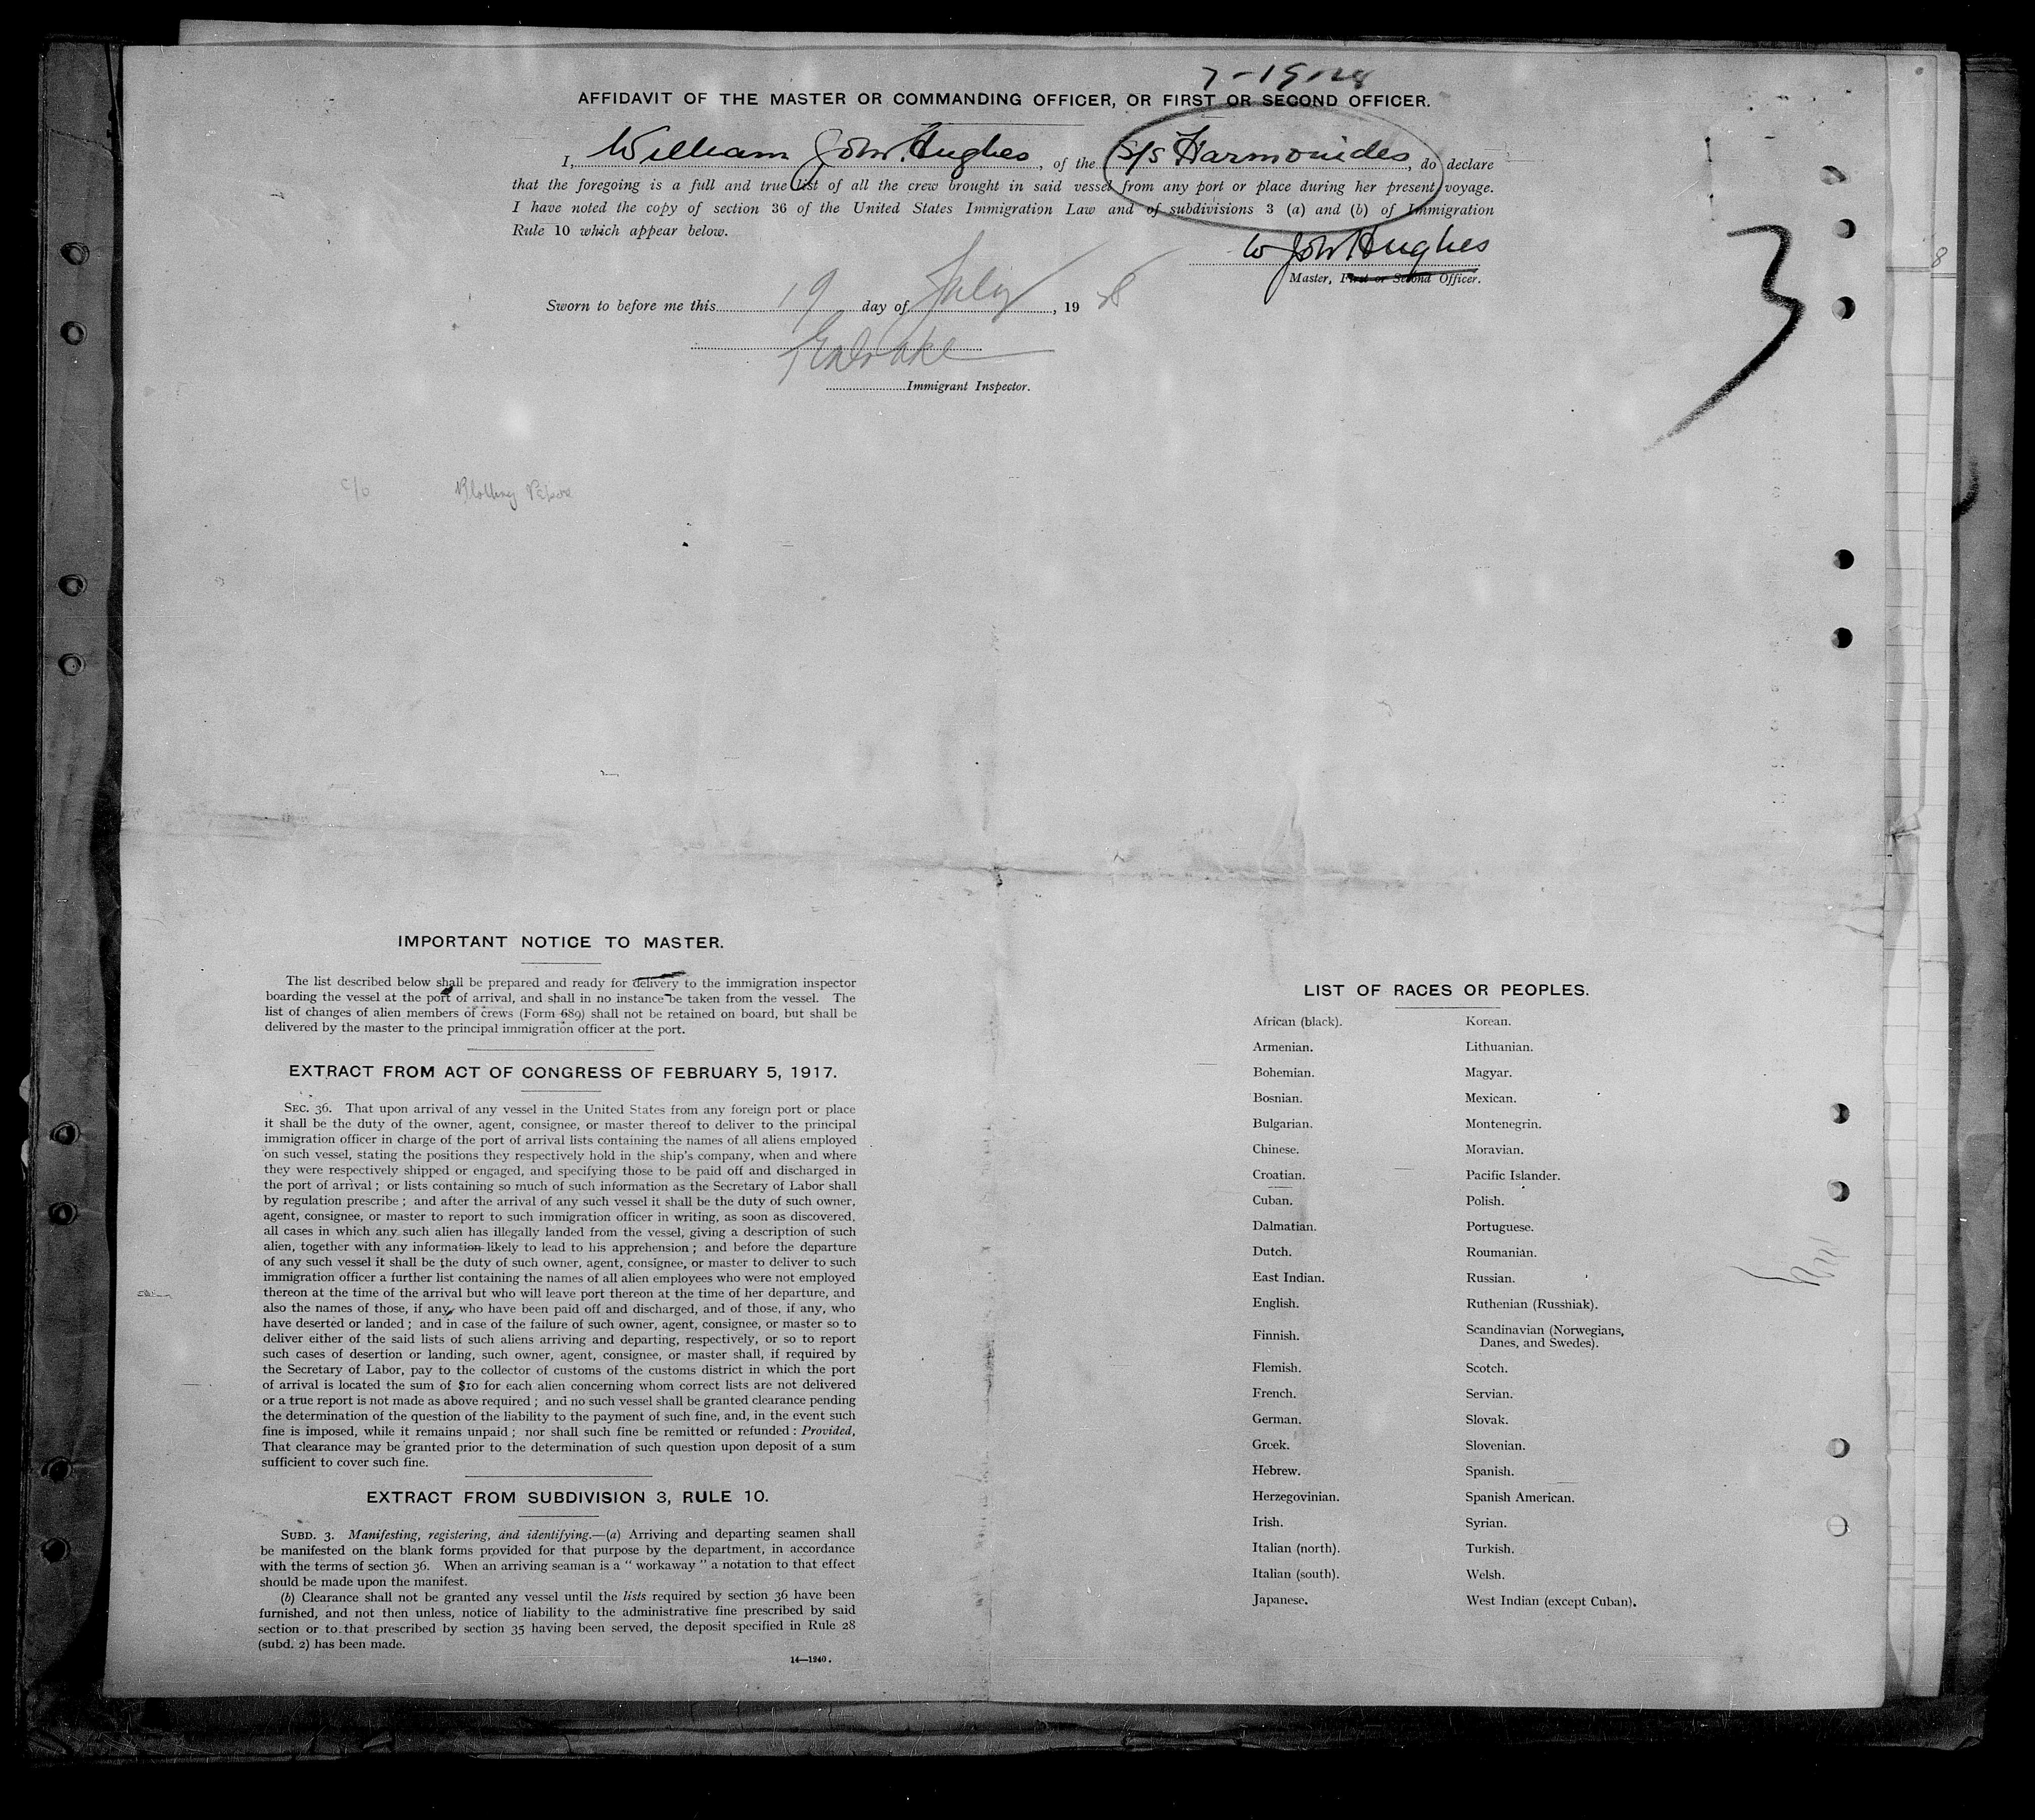 7-19-28
AFFIDAVIT OF THE MASTER OR COMMANDING OFFICER, OR FIRST OR SECOND OFFICER.
I, William John Hughes, of the S/S Harmonides, do declare
that the foregoing is a full and true list of all the crew brought in said vessel from any port or place during her present voyage.
I have noted the copy of section 36 of the United States Immigration Law and of subdivisions 3 (a) and (b) of Immigration
Rule 10 which appear below.
W John Hughes
Master, First or Second Officer.
Sworn to before me this 19 day of July, 19 28
Immigrant Inspector.
3
8
c/o Blotting Paper
IMPORTANT NOTICE TO MASTER.
The list described below shall be prepared and ready for delivery to the immigration inspector
boarding the vessel at the port of arrival, and shall in no instance be taken from the vessel. The
list of changes of alien members of crews (Form 689) shall not be retained on board, but shall be
delivered by the master to the principal immigration officer at the port.
EXTRACT FROM ACT OF CONGRESS OF FEBRUARY 5, 1917.
SEC. 36. That upon arrival of any vessel in the United States from any foreign port or place
it shall be the duty of the owner, agent, consignee, or master thereof to deliver to the principal
immigration officer in charge of the port of arrival lists containing the names of all aliens employed
on such vessel, stating the positions they respectively hold in the ship's company, when and where
they were respectively shipped or engaged, and specifying those to be paid off and discharged in
the port of arrival; or lists containing so much of such information as the Secretary of Labor shall
by regulation prescribe; and after the arrival of any such vessel it shall be the duty of such owner,
agent, consignee, or master to report to such immigration officer in writing, as soon as discovered,
all cases in which any such alien has illegally landed from the vessel, giving a description of such
alien, together with any information likely to lead to his apprehension; and before the departure
of any such vessel it shall be the duty of such owner, agent, consignee, or master to deliver to such
immigration officer a further list containing the names of all alien employees who were not employed
thereon at the time of the arrival but who will leave port thereon at the time of her departure, and
also the names of those, if any, who have been paid off and discharged, and of those, if any, who
have deserted or landed; and in case of the failure of such owner, agent, consignee, or master so to
deliver either of the said lists of such aliens arriving and departing, respectively, or so to report
such cases of desertion or landing, such owner, agent, consignee, or master shall, if required by
the Secretary of Labor, pay to the collector of customs of the customs district in which the port
of arrival is located the sum of $10 for each alien concerning whom correct lists are not delivered
or a true report is not made as above required; and no such vessel shall be granted clearance pending
the determination of the question of the liability to the payment of such fine, and, in the event such
fine is imposed, while it remains unpaid; nor shall such fine be remitted or refunded: Provided,
That clearance may be granted prior to the determination of such question upon deposit of a sum
sufficient to cover such fine.
EXTRACT FROM SUBDIVISION 3, RULE 10.
SUBD. 3. Manifesting, registering, and identifying.—(a) Arriving and departing seamen shall
be manifested on the blank forms provided for that purpose by the department, in accordance
with the terms of section 36. When an arriving seaman is a "workaway" a notation to that effect
should be made upon the manifest.
(b) Clearance shall not be granted any vessel until the lists required by section 36 have been
furnished, and not then unless, notice of liability to the administrative fine prescribed by said
section or to that prescribed by section 35 having been served, the deposit specified in Rule 28
(subd. 2) has been made.
14—1240.
LIST OF RACES OR PEOPLES.
African (black). Korean.
Armenian. Lithuanian.
Bohemian. Magyar.
Bosnian. Mexican.
Bulgarian. Montenegrin.
Chinese. Moravian.
Croatian. Pacific Islander.
Cuban. Polish.
Dalmatian. Portuguese.
Dutch. Roumanian.
East Indian. Russian.
English. Ruthenian (Russniak).
Finnish. Scandinavian (Norwegians,
Danes, and Swedes).
Flemish. Scotch.
French. Servian.
German. Slovak.
Greek. Slovenian.
Hebrew. Spanish.
Herzegovinian. Spanish American.
Irish. Syrian.
Italian (north). Turkish.
Italian (south). Welsh.
Japanese. West Indian (except Cuban).